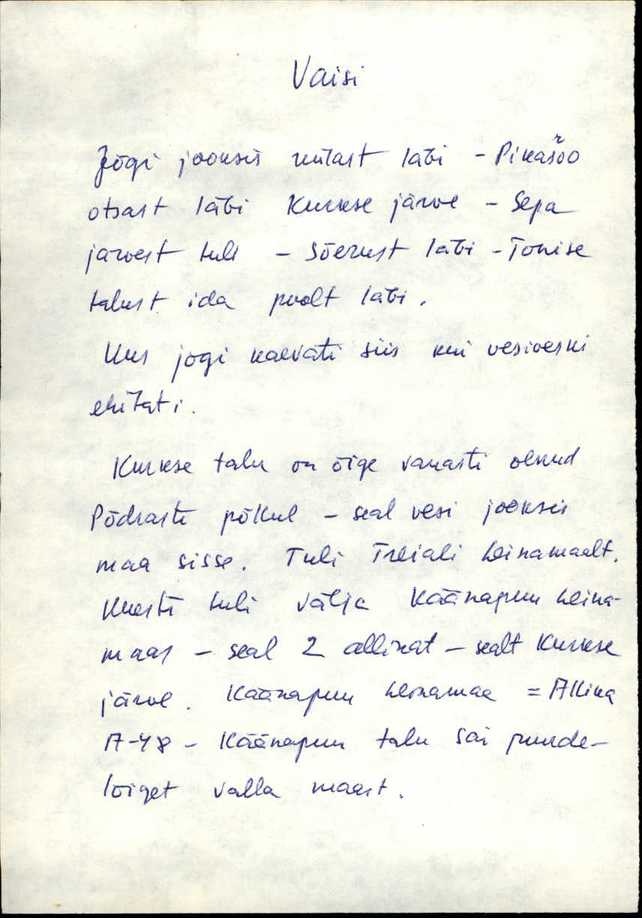 Vaisi
Jõgi jooksis külast läbi - Pikašoo
otsast läbi Kurkse järve - Sepa
järvest tuli - Sõerust läbi - Tonise
talust ida poolt läbi.
Uus jõgi kaevati siis kui vesiveski
ehitati.
Kurkse talu on õige vanasti olnud
Põdraste põkul - seal vesi jooksis
maa sisse. Tuli Treiali heinamaalt.
Uuesti tuli välja Käänapuu heina-
maas - seal 2 allikat - sealt Kurkse
järve. Käänapuu heinamaa = Allika
A-48 - Käänapuu talu sai juurde-
lõiget valla maast.